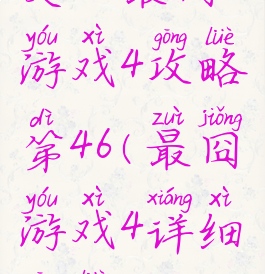 yóu xì gōng lüè
游戏4攻略
dì zuì jiǒng
第46(最囧
yóu xì xiáng xì
游戏4详细